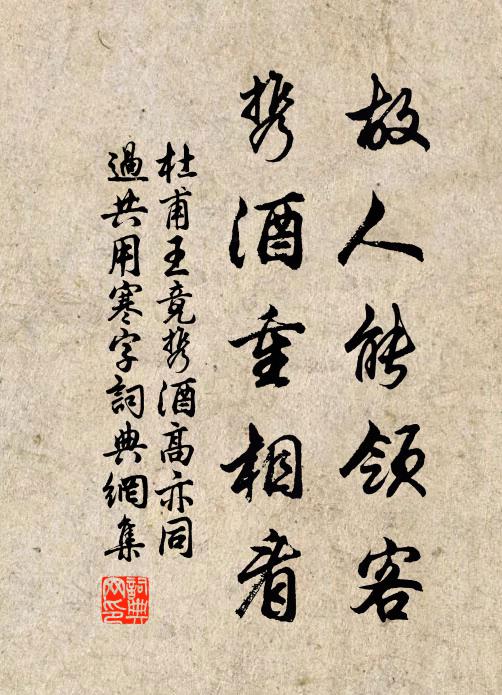 故人能領客
携酒重相看
杜甫王竟携酒高亦同
過共用寒字詞典網集
詞典网印